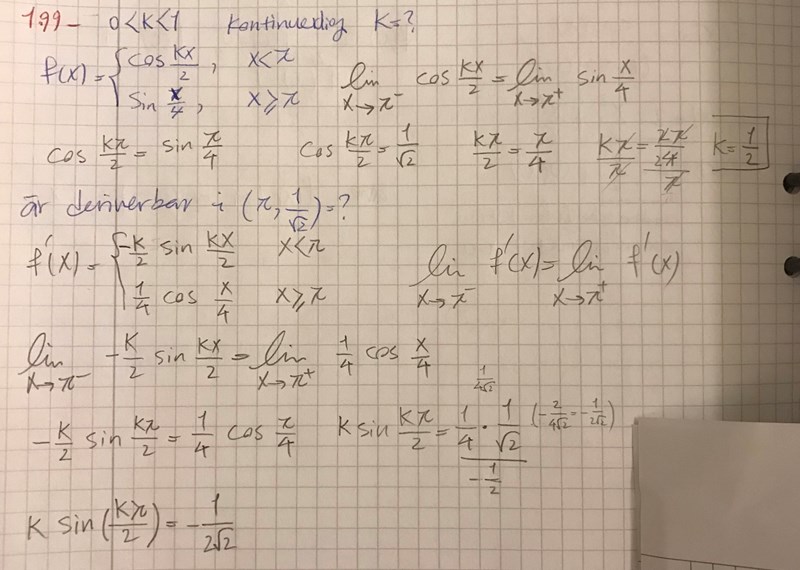 199- 0<K<1 Kontinuerlig K=?
f(x)={cos Kx/2, x<π
sin x/4, x⩾π
lim x→π⁻ cos Kx/2 = lim x→π⁺ sin x/4
cos Kπ/2 = sin π/4 cos Kπ/2 = 1/√2 Kπ/2 = π/4 Kπ/π = (2π/24)/π K=1/2
är deriverbar i (π, 1/√2)=?
f'(x)={-K/2 sin Kx/2 x<π
1/4 cos x/4 x⩾π
lim x→π⁻ f'(x) = lim x→π⁺ f'(x)
lim x→π⁻ -K/2 sin Kx/2 = lim x→π⁺ 1/4 cos x/4
1/4√2
-K/2 sin Kπ/2 = 1/4 cos π/4 K sin Kπ/2 = (1/4 · 1/√2)/(-1/2) (-2/4√2 = -1/2√2)
K sin(Kπ/2) = -1/2√2